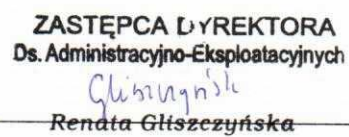 ZASTĘPCA DYREKTORA
Ds. Administracyjno-Eksploatacyjnych
Gliszczyńsk
Renata Gliszczyńska